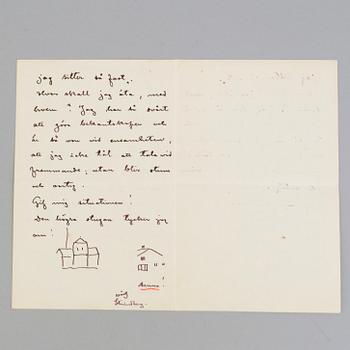 jag sitter så fast.
Hvar skall jag äta, med
hvem? Jag har så svårt
att göra bekantskaper och
är så van vid ensamheten,
att jag icke tål att tala vid
främmande, utan blir stum
och oartig.
Gif mig situationen!
Den högra stugan tycker jag
om!
Denna!
Strindberg.